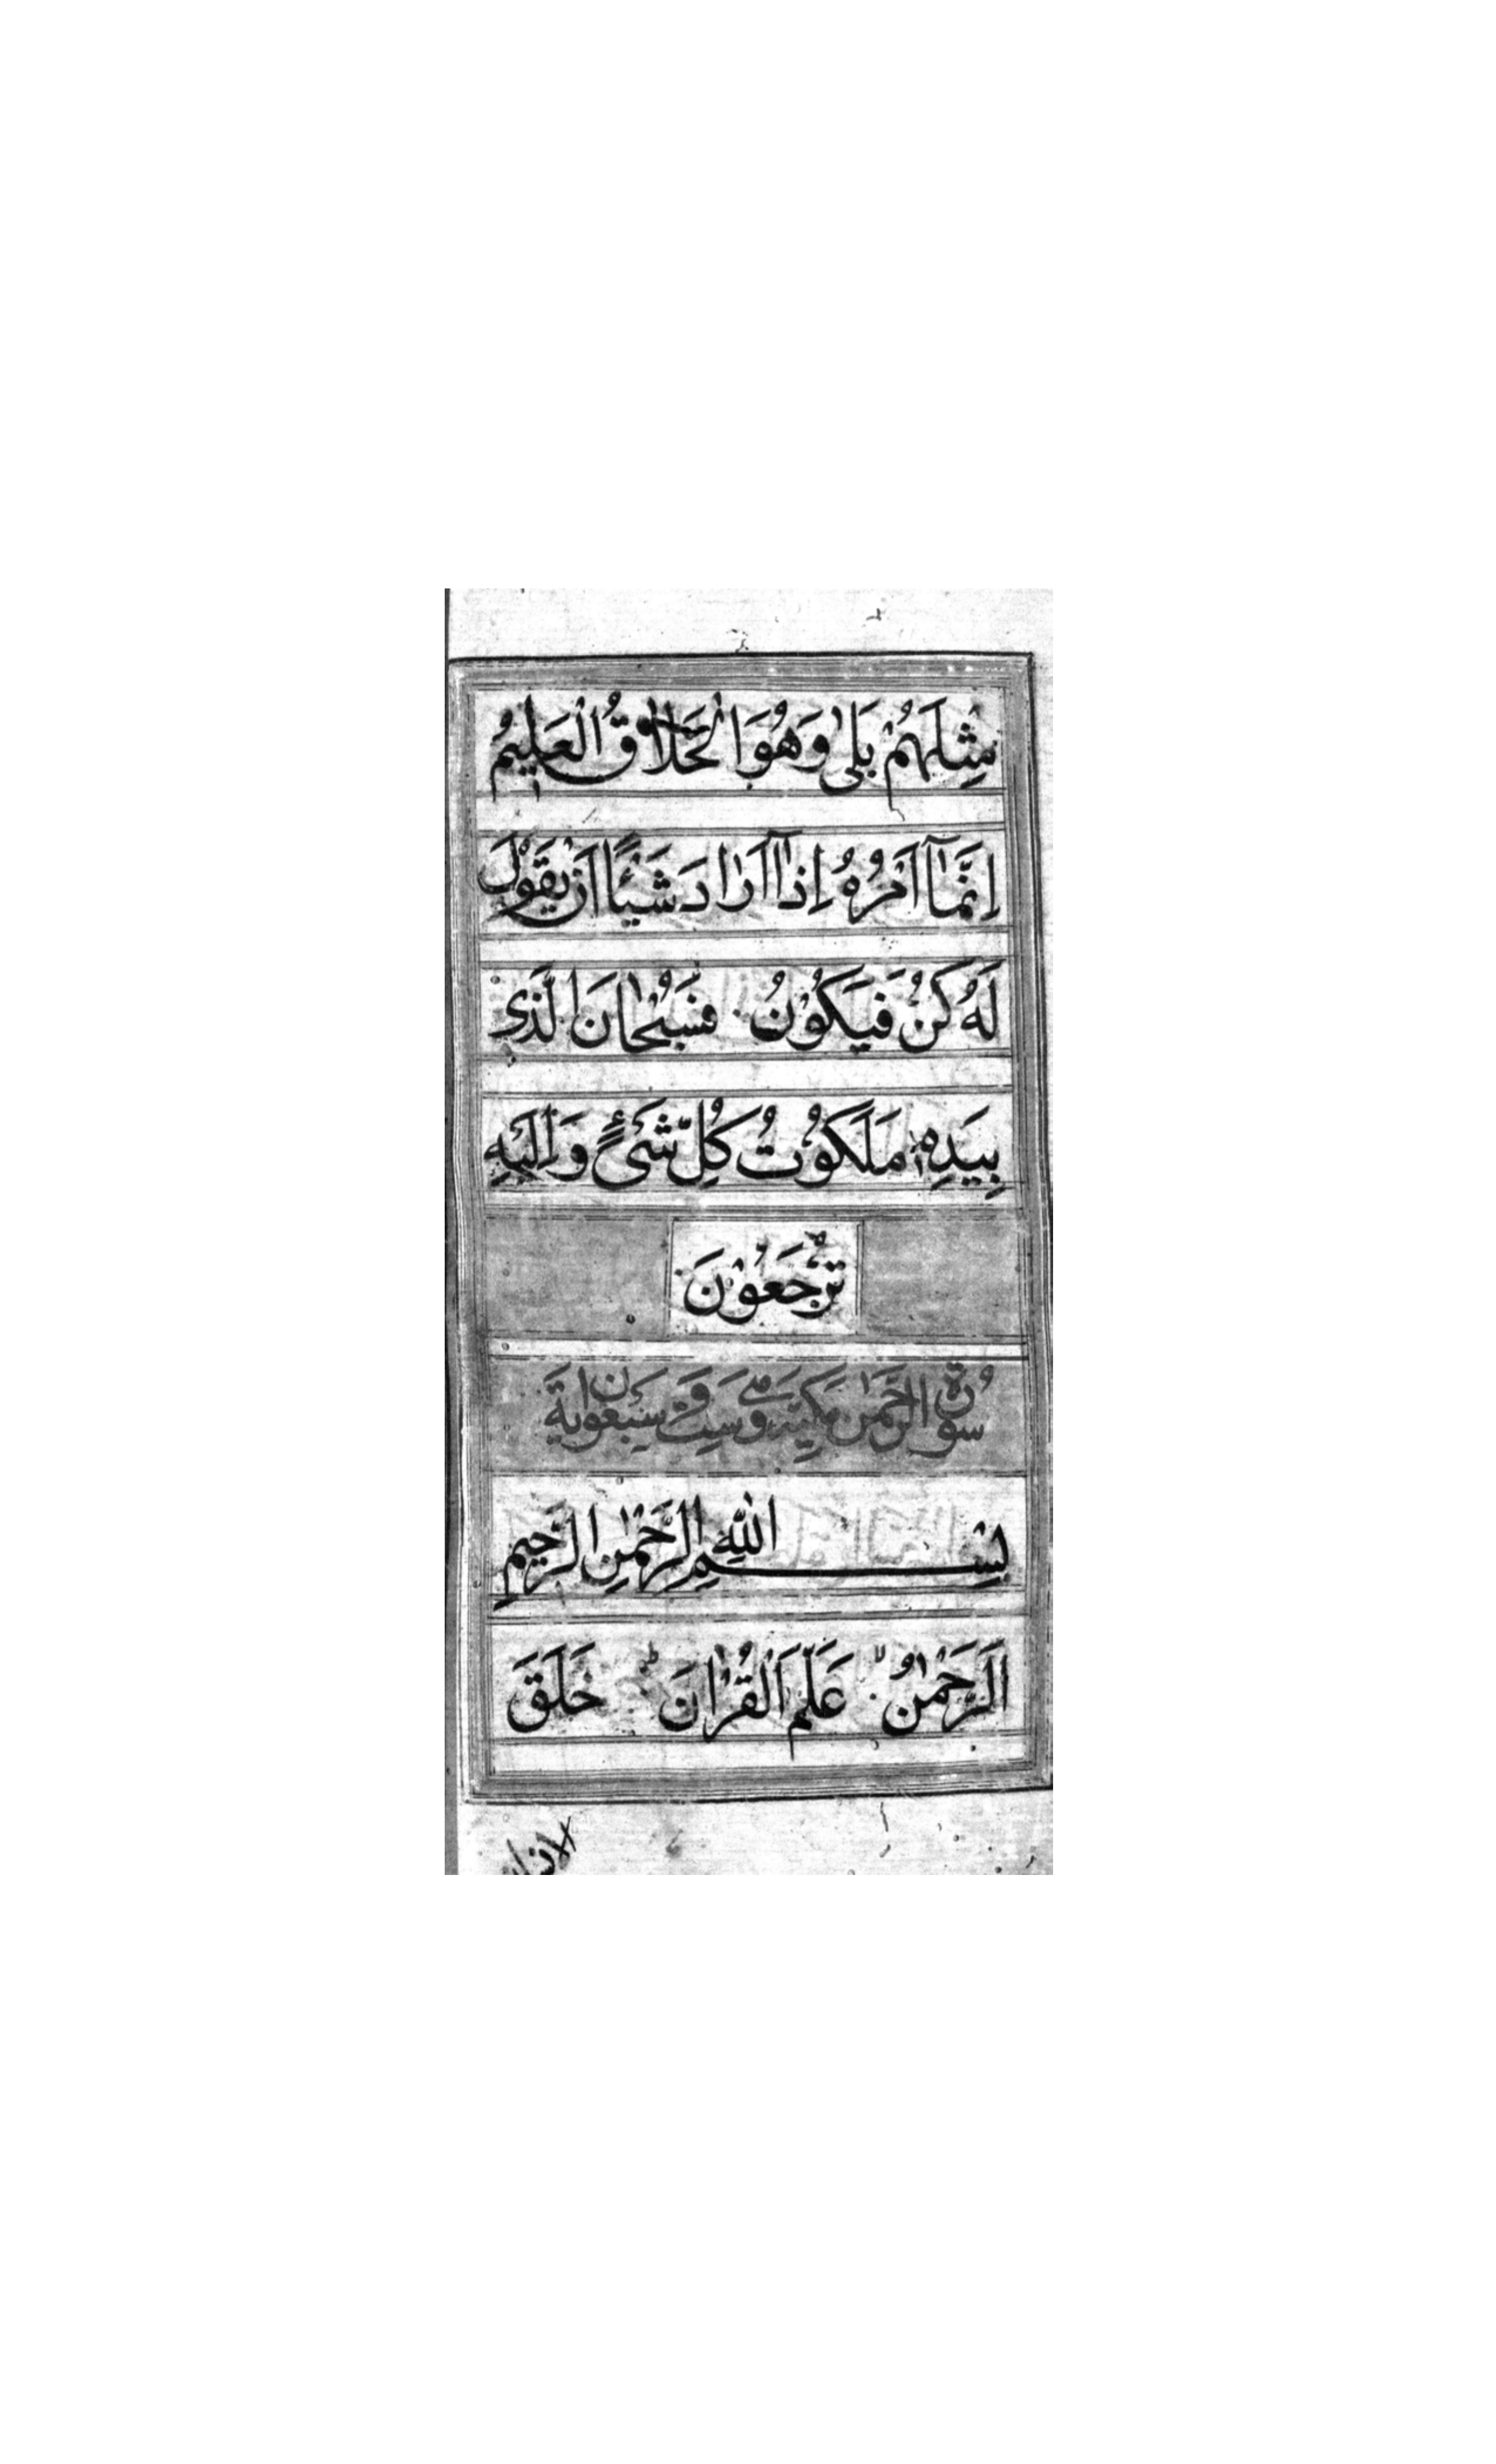 مِثْلَهُمْ بَلٰى وَهُوَ الْخَلَّاقُ الْعَلِيمُ
اِنَّمَآ اَمْرُهُ اِذَآ اَرَادَ شَيْئًا اَنْ يَقُوْلَ
لَهُ كُنْ فَيَكُوْنُ فَسُبْحَانَ الَّذِى
بِيَدِهٖ مَلَكُوْتُ كُلِّ شَىْءٍ وَاِلَيْهِ
تُرْجَعُوْنَ
سُوْرَةُ الرَّحْمٰن مكية وهى ست و سبعون اية
بِسْمِ اللّٰهِ الرَّحْمٰنِ الرَّحِيمِ
اَلرَّحْمٰنُ عَلَّمَ الْقُرْاٰنَ خَلَقَ
الانسان